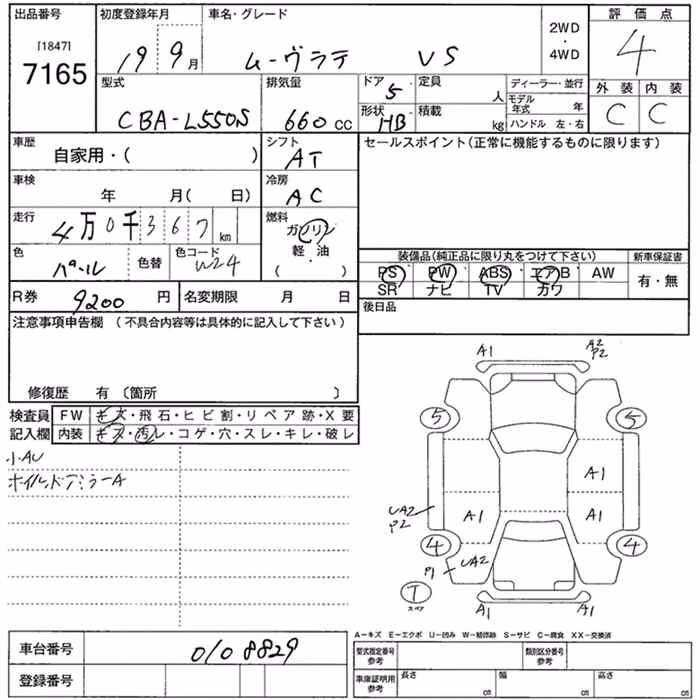 出品番号 初度登録年月 車名・グレード 2WD ・ 4WD 評価点
[1847] 7165 19 9月 ムーヴラテ VS 4
型式 排気量 ドア 5 定員 人 ディーラー・並行 外装 内装
CBA-L550S 660cc 形状 HB 積載 kg モデル年式 年 ハンドル 左・右 C C
車歴 自家用・( ) シフト AT セールスポイント(正常に機能するものに限ります)
車検 年 月( 日) 冷房 AC
走行 4万0千367km 燃料 ガソリン 軽・油 ( )
色 パール 色替 色コード W24
装備品(純正品に限り丸をつけて下さい) 新車保証書
PS PW ABS エアB AW 有・無
SR ナビ TV カワ
R券 9200円 名変期限 月 日 後日品
注意事項申告欄 (不具合内容等は具体的に記入して下さい)
修復歴 有 〔箇所 〕
検査員 FW キズ・飛石・ヒビ割・リペア跡・X要
記入欄 内装 キズ・汚レ・コゲ・穴・スレ・キレ・破レ
小AU
ホイル,ドアミラーA
A1 A2 P2
5 5
A1
UA2 P2 A1 A1
4 4
P1 UA2
T スペア A1 A1
A-キズ E-エクボ U-凹み W-補修跡 S-サビ C-腐食 XX-交換済
車台番号 0108829 型式指定番号 参考 類別区分番号 参考
登録番号 車庫証明用 参考 長さ cm 幅 cm 高さ cm